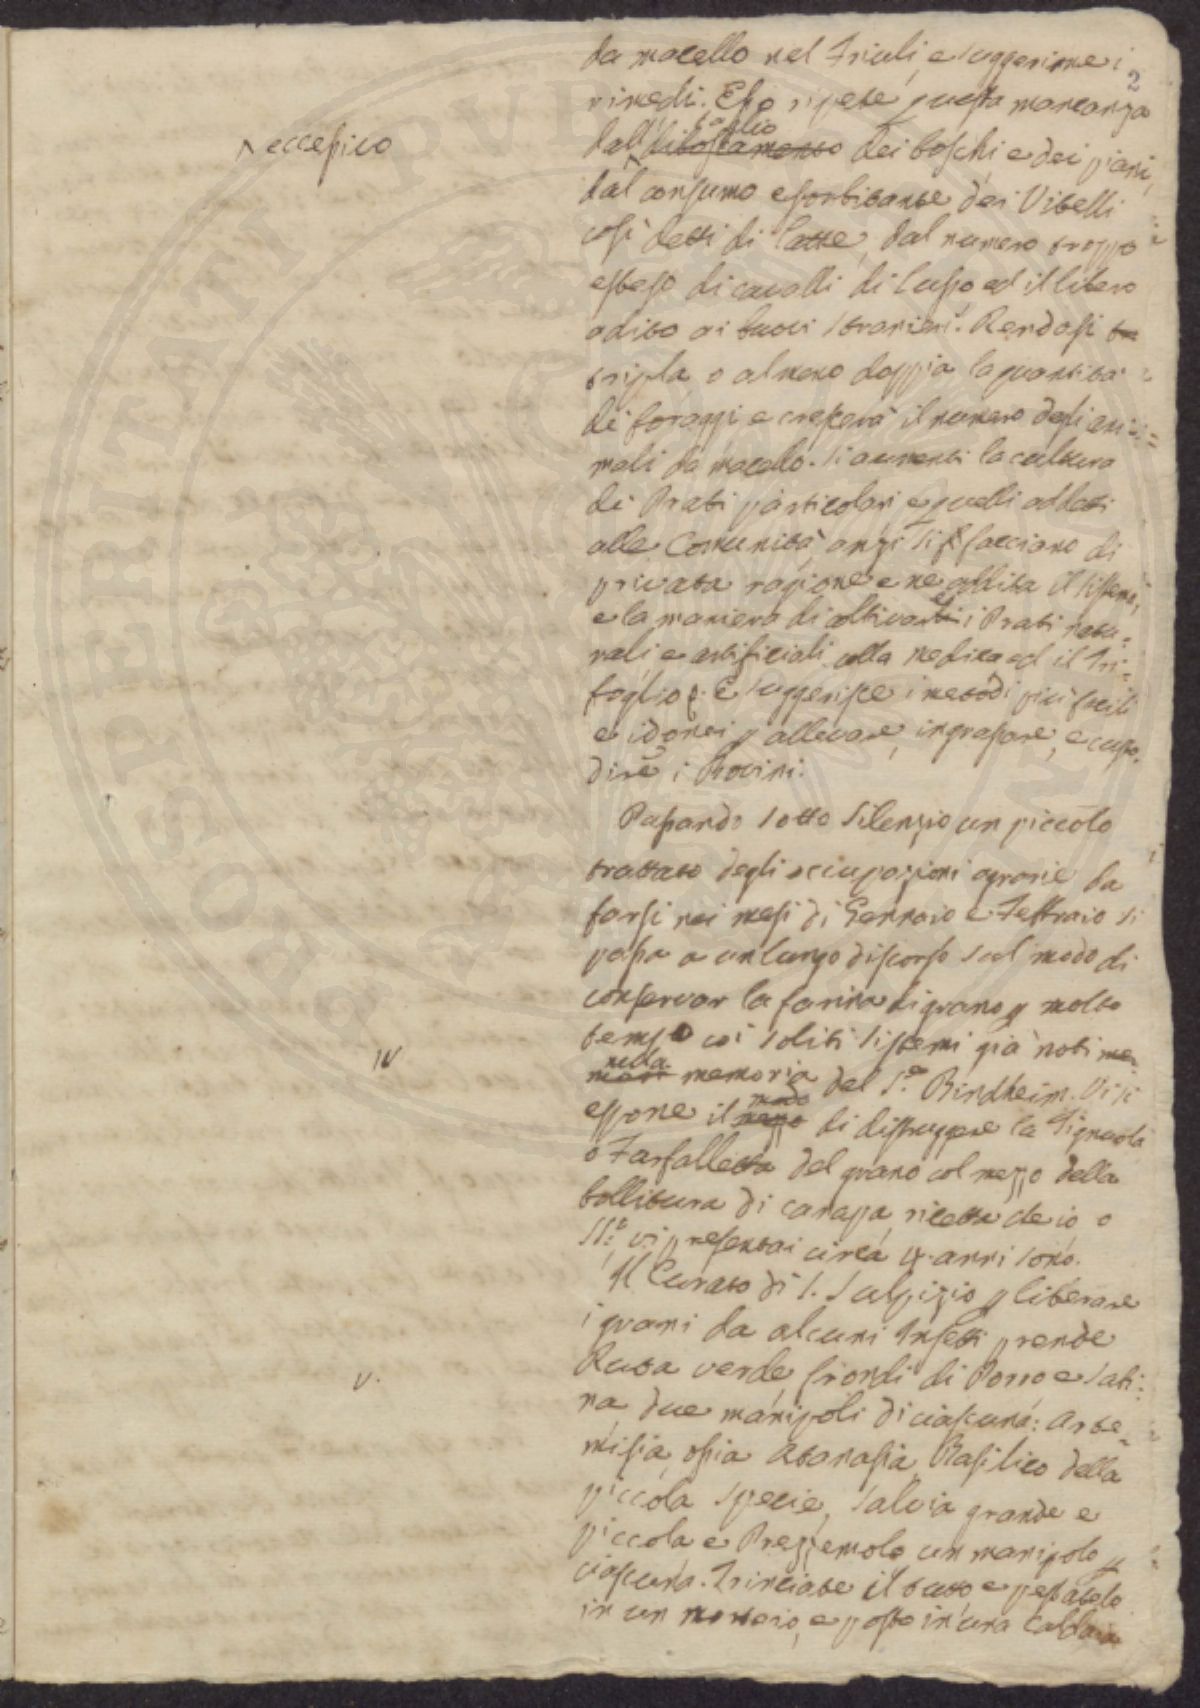 da macello nel Friuli, e suggerirne i
2
rimedi. Esso ripete questa mancanza
eccessivo
taglio
dall' disboscamento dei boschi e dei piani,
dal consumo esorbitante dei Vitelli
così detti di latte, dal numero troppo
esteso di cavalli di lusso ed il libero
adito ai buovi stranieri. Rendasi tri
tripla o almeno doppia la quantità
di foraggi e crescerà il numero degli ani=
mali da macello. Si aumenti la cultura
di Prati particolari e quelli addetti
alle Comunità anzi si facciano di
privata ragione e ne addita il sistema,
e la maniera di coltivare i Prati natu=
rali e artificiali colla medica ed il Tri=
foglio. E suggerisce i metodi più facili
e idonei p allevare, ingrassare, e custo,
dire i Bovini.
Passando sotto silenzio un piccolo
trattato degli occupazioni agrarie da
farsi nei mesi di Gennaio e Febbraio si
passa a un lungo discorso sul modo di
conservar la farina di grano p molto
tempo coi soliti sistemi già noti me
IV
nella
memoria del S.r Bindheim. Vi si
modo
espone il mezzo di distruggere la Tignuola
o Farfalletta del grano col mezzo della
bollitura di canapa, ricetta che io o
SS.ri vi presentai circa 4 anni sono.
Il Curato di S. Sulpizio p liberare
i grani da alcuni Insetti prende
V.
Ruta verde, frondi di Porro e Sabi=
na due manipoli di ciascuna: Arte=
misia, ossia Atanasia, Basilico della
piccola specie, salvia grande e
piccola e Prezzemolo un manipolo p
ciascuna. Trinciate il tutto e pestatelo
in un mortaio, e posto in una Caldaia